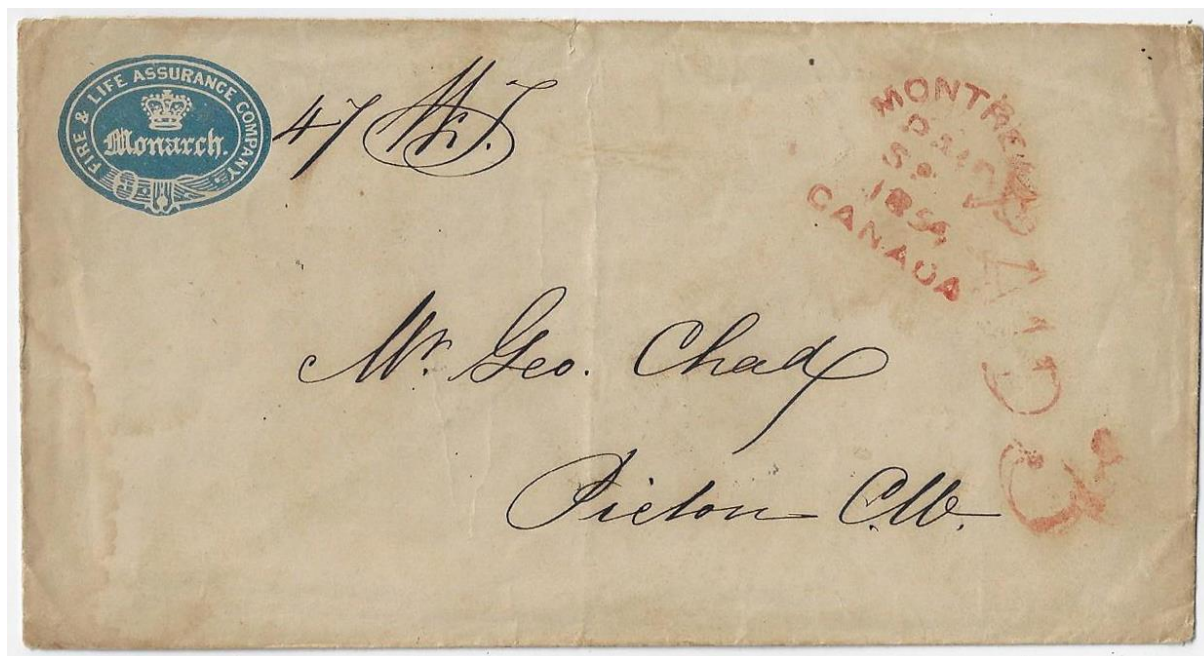 FIRE & LIFE ASSURANCE COMPANY.
Monarch.
47
MONTREAL
PAID
1854
CANADA
PAID 3
Mr. Geo. Chad
Picton CW.